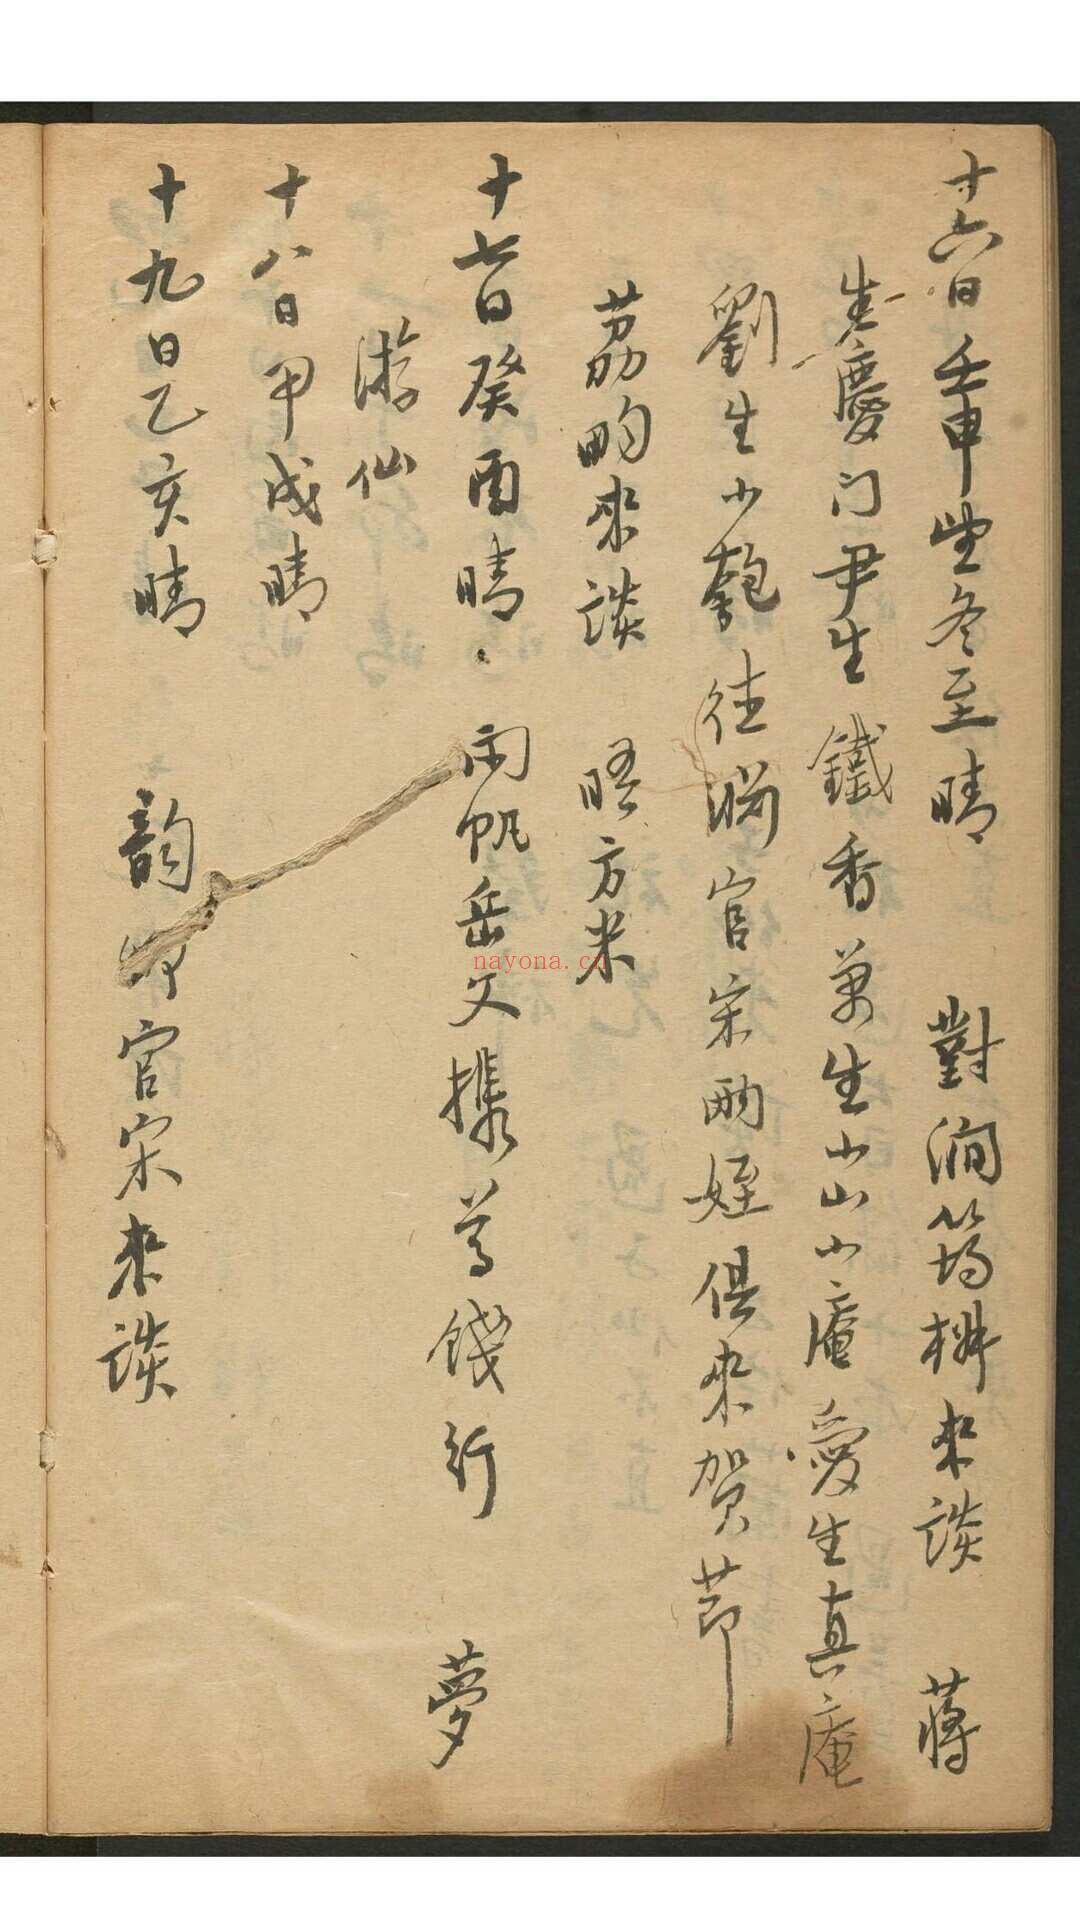 十六日壬申 冬至晴 對澗筠 來談 蔣
生慶門尹生鐵香萬生小山小庵愛生真庵
劉生小匏 官宋兩姪俱來賀節
荔畇來談 晤方米
十七日癸酉晴 雨帆岳丈攜尊餞行 夢
游仙
十八日甲戌晴
十九日乙亥晴 韵 官宋來談
nayona.cn